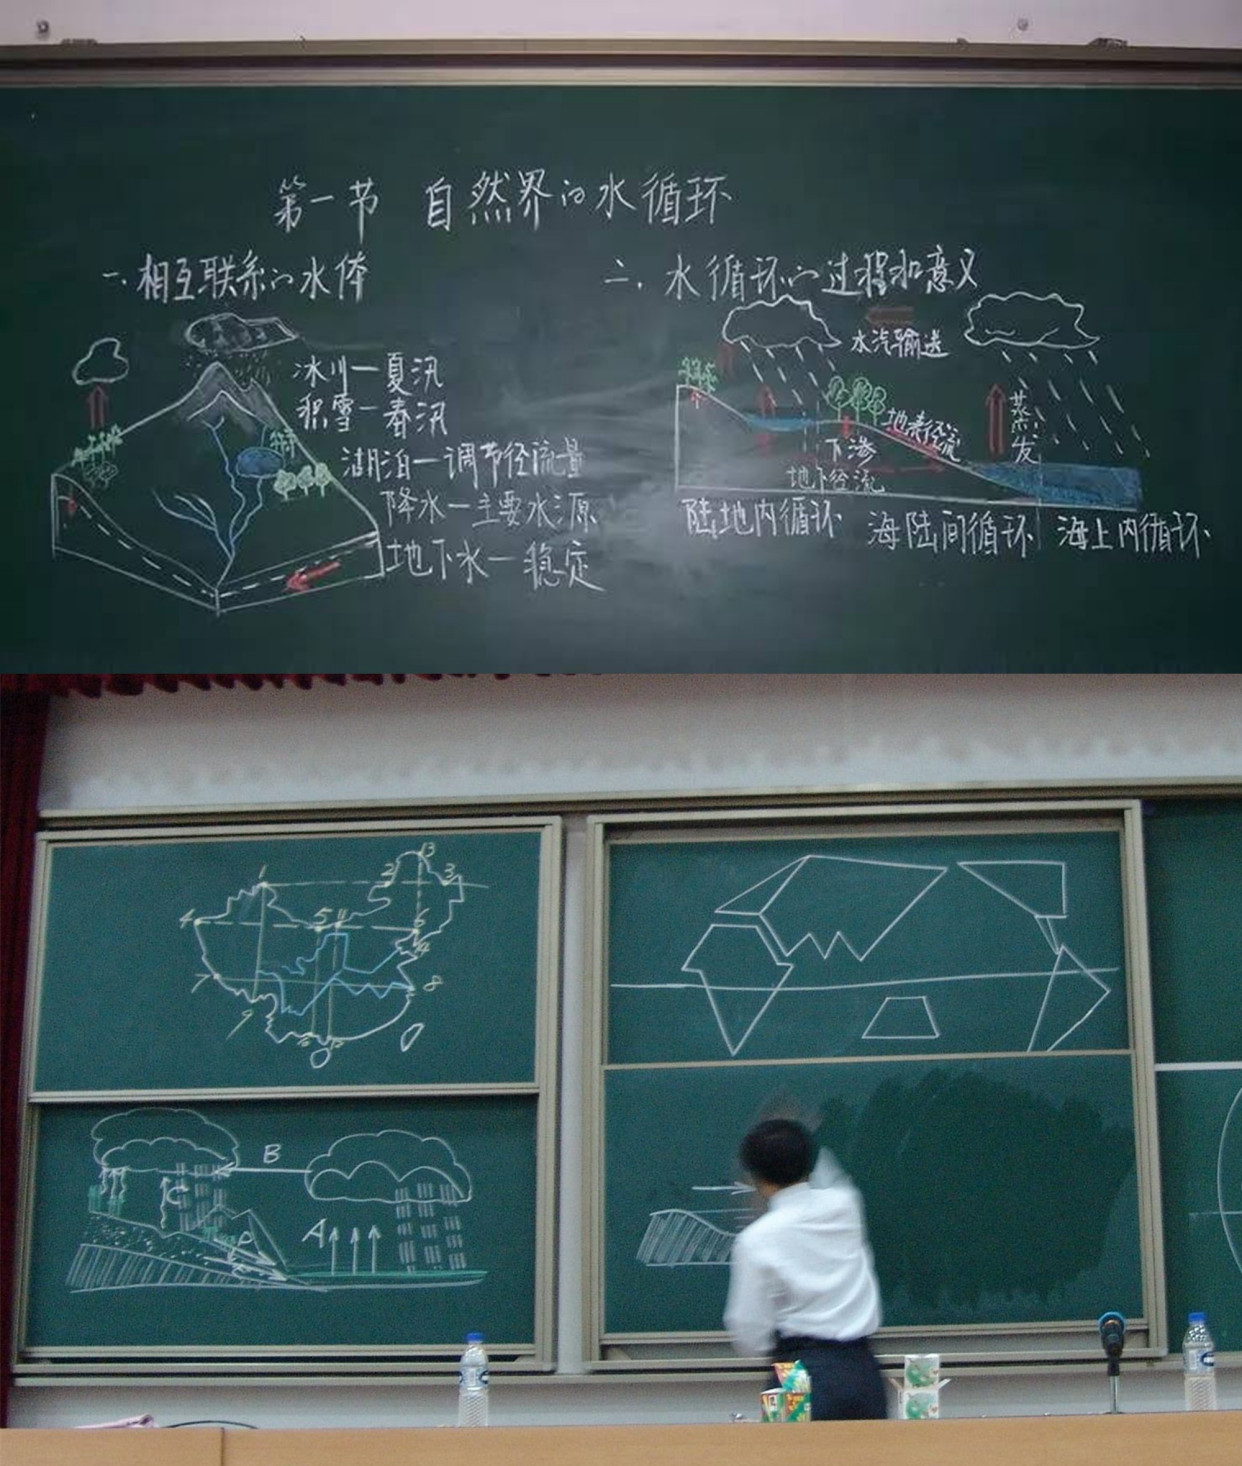 第一节 自然界的水循环
一.相互联系的水体
冰川一夏汛
积雪一春汛
湖泊一调节径流量
降水一主要水源
地下水一稳定
二.水循环的过程和意义
水汽输送
蒸发
地表径流
下渗
地下径流
陆地内循环 海陆间循环 海上内循环
1
2
13
3
4
5
11
6
14
7
8
9
12
B
C
A
D